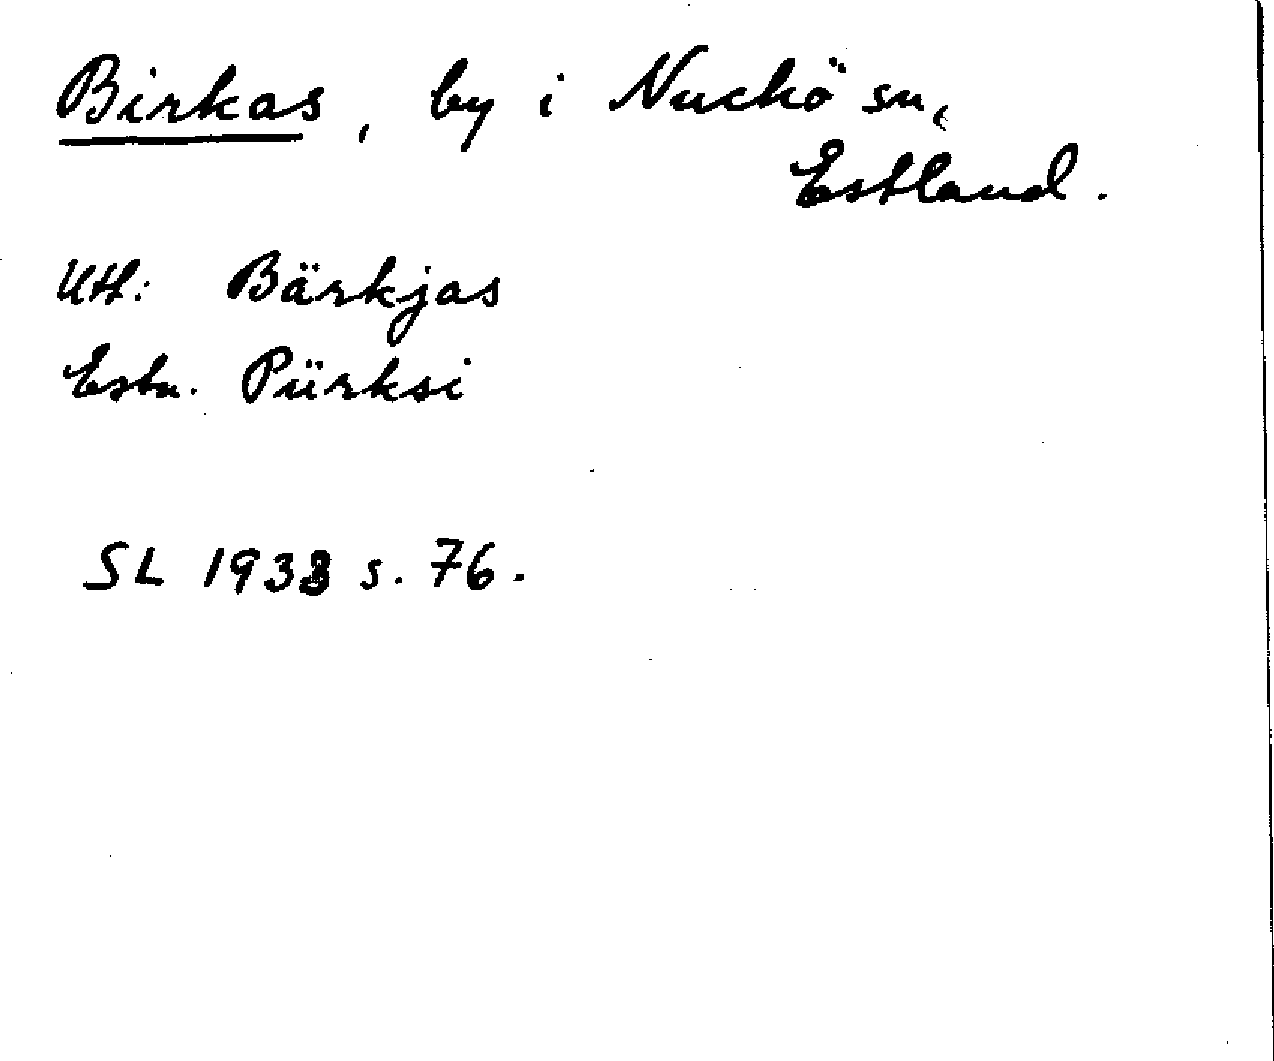 Birkas, by i Nuckö sn,
Estland.
Utt: Bärkjas
Estn. Pürksi
SL 1933 s. 76.